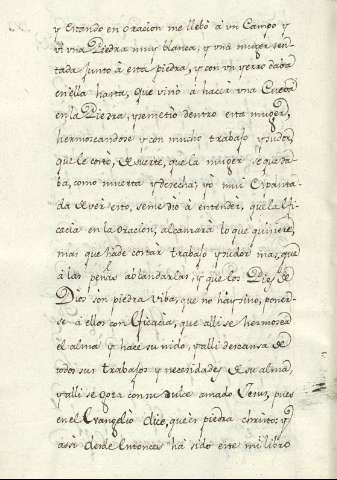 y estando en oracion me llebó à un Campo y
vi vna Piedra muy blanca, y vna muger sen-
tada junto à esta piedra, y con vn yerro daba
en ella hasta, que vino à hacer vna Cueba
en la Piedra, y se metio dentro esta muger,
hermoseandose y con mucho trabajo y sudor,
que le costó, de suerte, que la muger se queda-
ba, como muerta y desecha; yo mui Espanta-
da de ver esto, se me dió à entender, que la efi-
cacia en la oracion, alcansará lo que quiniere,
mas que hade costar trabajo y sudor mas, que
à las peñas ablandarlas, y que los Pies de
Dios son piedra viba, que no hay sino, poner-
se à ellos con eficacia, que alli se hermosea
el alma y hace su nido, y alli descansa de
todos sus trabajos y necesidades de su alma,
y alli se goza con su dulce amado Jesus, pues
en el Evangelio dice, que es piedra christo: y
assi desde Entonces há sido este mi libro